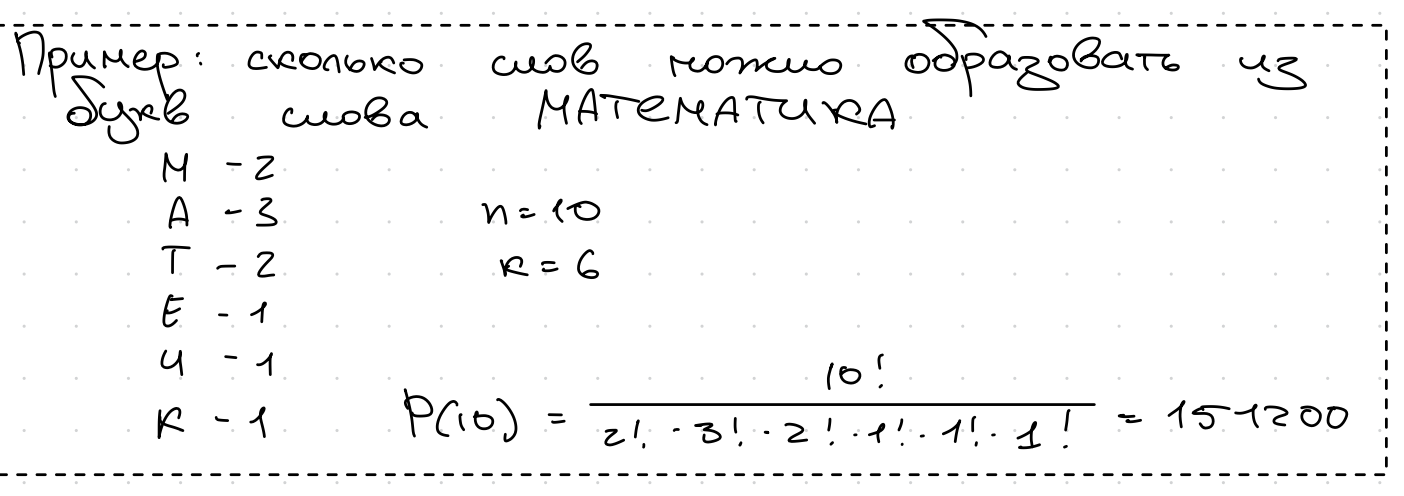 Пример: сколько слов можно образовать из
букв слова МАТЕМАТИКА
М - 2
А - 3 n = 10
Т - 2 к = 6
Е - 1
И - 1
К - 1 P(10) = 10! / (2! · 3! · 2! · 1! · 1! · 1!) = 151200